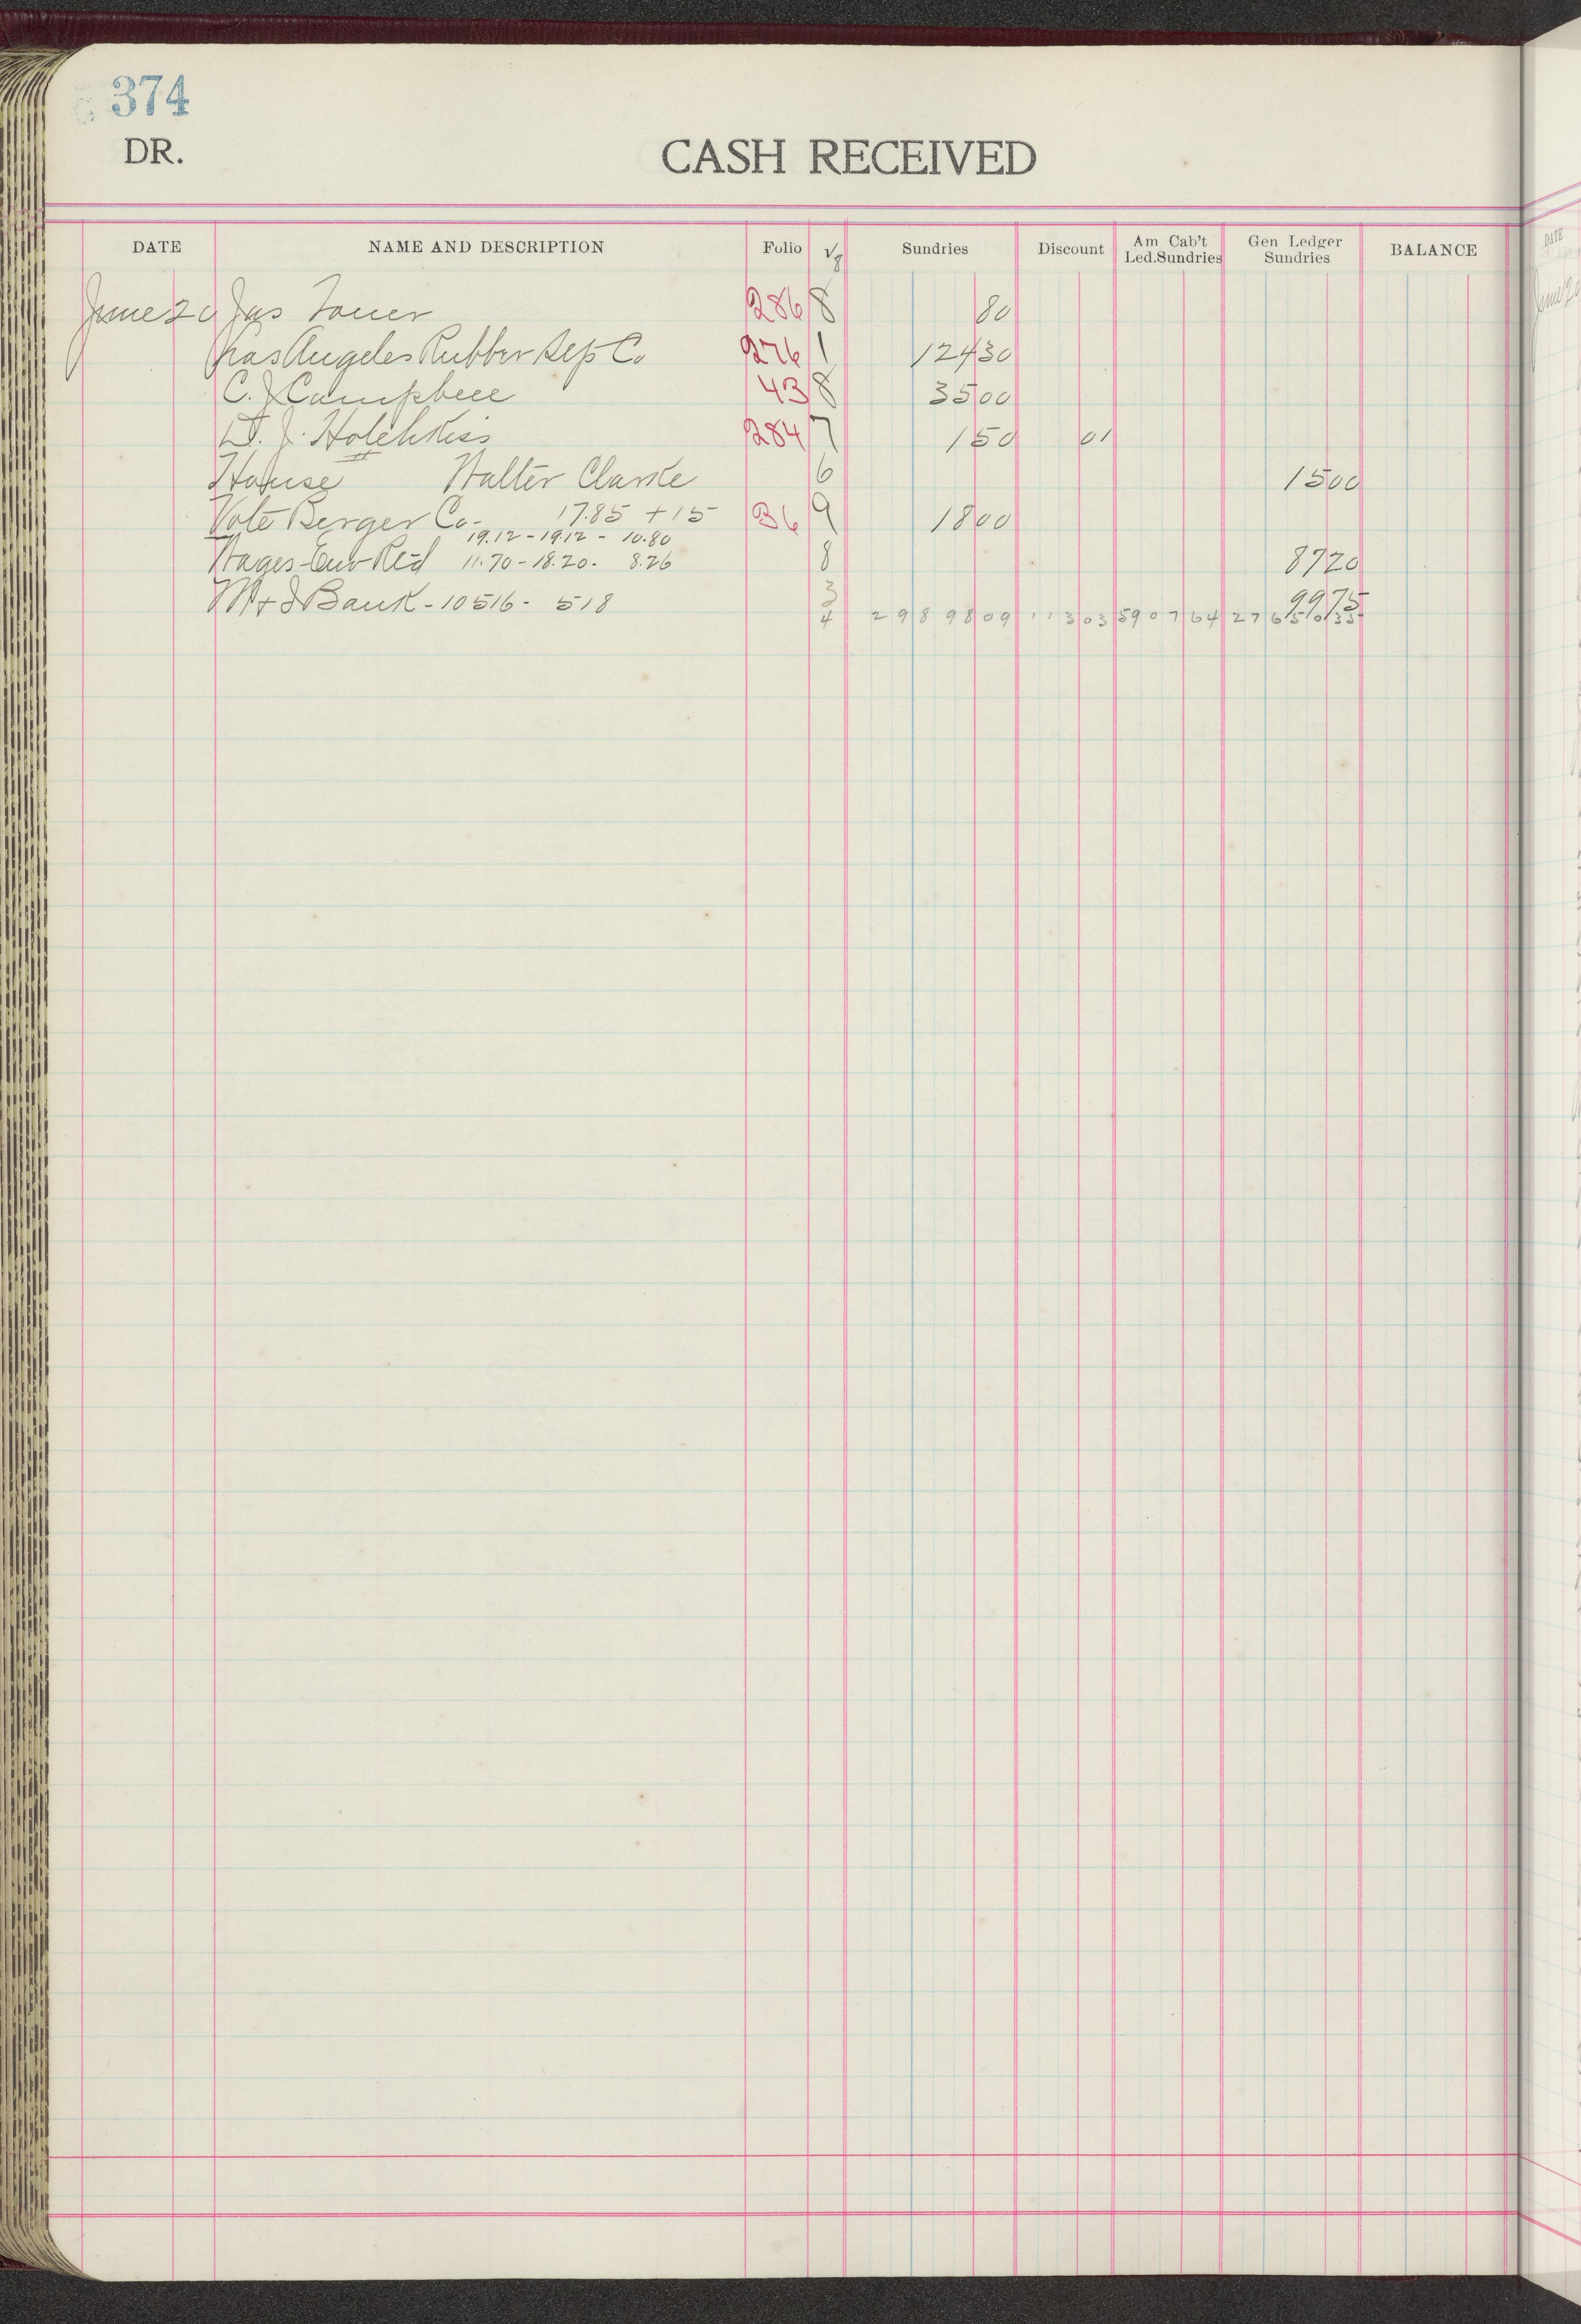 374
DR.
CASH RECEIVED
DATE NAME AND DESCRIPTION Folio √8 Sundries Discount Am Cab't Led.Sundries Gen Ledger Sundries BALANCE
June 20 Jas 286 8 80
Los Angeles Rubber Co 276 1 124 30
C. J Campbell 43 8 35 00
J. Hotchkiss 284 7 1 50 01
House Walter Clarke 6 15 00
Berger Co. 17.85 + 15 36 9 18 00
19.12 - 19.12 - 10.80
Wages 11.70 - 18.20 - 8.26 8 87 20
M & I Bank - 10516 - 518 3 99 75
4 29898 09 113 03 5907 64 27650 35
DATE
June 20